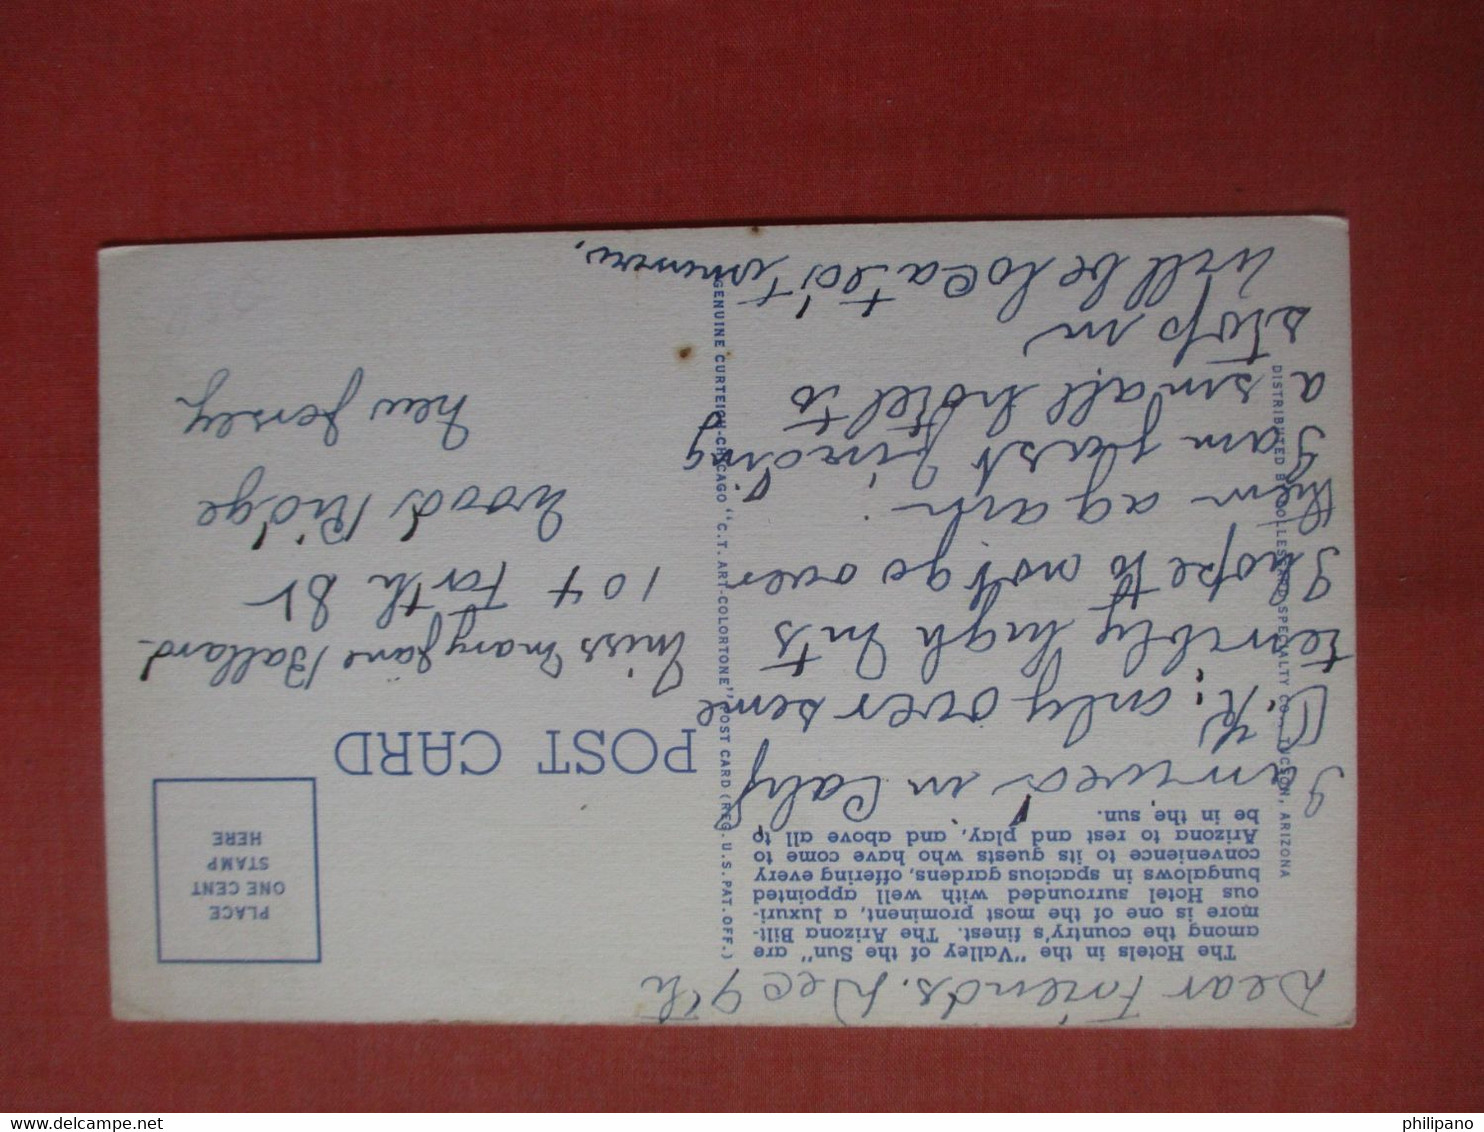 Dear Friends. Dec 9th
The Hotels in the "Valley of the Sun" are
among the country's finest. The Arizona Bilt-
more is one of the most prominent, a luxuri-
ous Hotel surrounded with well appointed
bungalows in spacious gardens, offering every
convenience to its guests who have come to
Arizona to rest and play, and above all to
be in the sun.
I arrived in Calif
O.K. only over some
terribly high Mts
I hope to not go over
them again.
I am just finding
a small hotel to
stop in
will be located tomorrow.
DISTRIBUTED BY LOLLESGARD SPECIALTY CO., TUCSON, ARIZONA
GENUINE CURTEICH-CHICAGO "C.T. ART-COLORTONE" POST CARD (REG. U.S. PAT. OFF.)
POST CARD
PLACE
ONE CENT
STAMP
HERE
Miss Mary Jane Ballard
104 Forth St
Wood Ridge
New Jersey
philipano